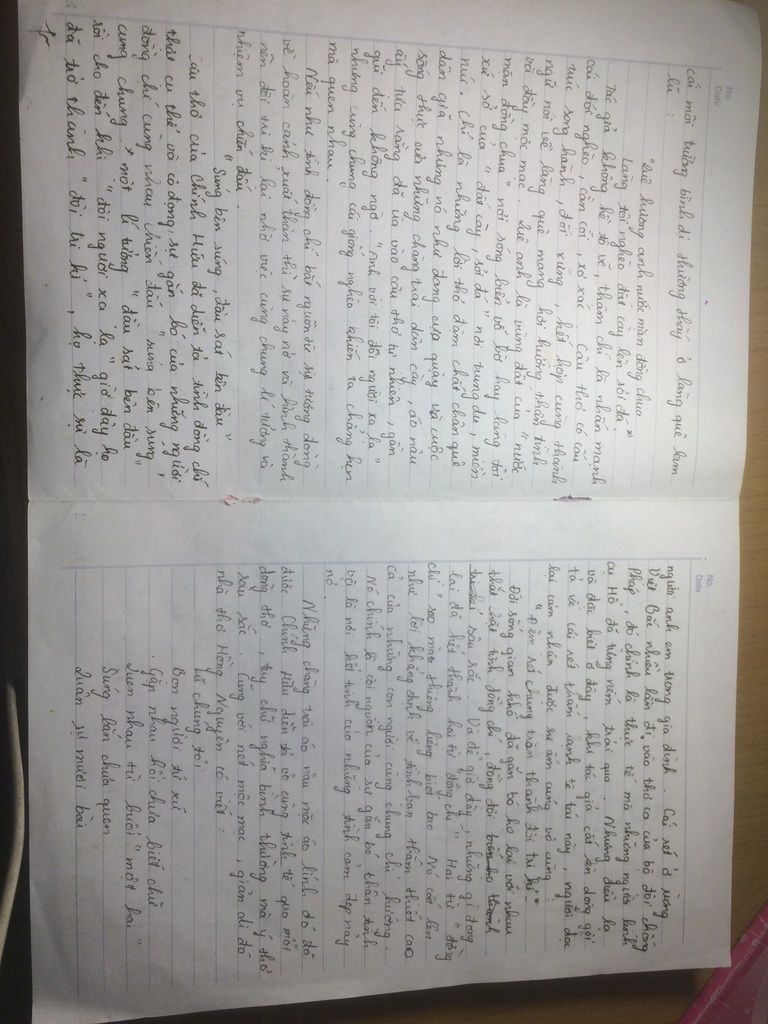 No.
Date
cái mà ta tưởng bình dị thường thấy ở làng quê lam
lũ :
"Quê hương anh nước mặn đồng chua
Làng tôi nghèo đất cày lên sỏi đá"
Tác giả không hề tô vẽ, thậm chí là nhấn mạnh
cái đói nghèo, cằn cỗi, xơ xác. Câu thơ có cấu
trúc song hành, đối xứng, kết hợp cùng thành
ngữ nói về làng quê mang hơi hướng thân tình
vời đầy mộc mạc. Quê anh là vùng đất của "nước
mặn đồng chua" nơi sóng biển vỗ bờ hay làng tôi
xứ sở của "đất cày, sỏi đá" nơi trung du, miền
núi. Chỉ là những lời thơ đậm chất chân quê
dân giã nhưng nó như đang cựa quậy và cuộc
sống thực của những chàng trai dân cày, áo nâu
ấy tựa sống đã ùa vào câu thơ tự nhiên, gần
gũi đến không ngờ. "Anh với tôi đôi người xa lạ"
nhưng cùng chung cái giống nghèo khiến ta chẳng hẹn
mà quen nhau.
Nếu như tình đồng chí bắt nguồn từ sự tương đồng
về hoàn cảnh xuất thân thì sự nảy nở và hình thành
nên đôi tri kỉ lại nhờ việc cùng chung lí tưởng và
nhiệm vụ chiến đấu.
"Súng bên súng, đầu sát bên đầu"
Câu thơ của Chính Hữu đã diễn tả tình đồng chí
thật cụ thể và cô đọng sự gắn bó của những người
đồng chí cùng nhau chiến đấu "súng bên súng"
cùng chung một lí tưởng "đầu sát bên đầu"
rồi cho đến khi "đôi người xa lạ" giờ đây họ
đã trở thành "đôi tri kỉ", họ thực sự là
No.
Date
người anh em trong gia đình. Cái rét ở rừng
Việt Bắc nhiều lần đi vào thơ ca của bộ đội chống
Pháp, đó chính là thực tế mà những người lính
cụ Hồ đã từng nếm trải qua. Những điều lạ
và đặc biệt ở đây, khi tác giả cất lên dòng gợi
tả về cái rét thấm lạnh tê tái này, người đọc
lại cảm nhận được sự ấm cúng vô cùng
"Đêm rét chung chăn thành đôi tri kỉ"
Đời sống gian khổ đã gắn bó họ lại với nhau
thắt chặt tình đồng chí, đồng đội
sâu sắc. Và để giờ đây, những gì đọng
lại đã kết thành hai từ đồng chí "Hai từ "đồng
chí" sao mà thiêng liêng biết bao. Nó cất lên
như lời khẳng định về tình bạn thắm thiết cao
cả của những con người cùng chung chí hướng.
Nó chính là cội nguồn của sự gắn bó thân tình
bởi là nơi kết tinh của những tình cảm đẹp này
nở.
Những chàng trai áo nâu mặc áo lính đó đã
được Chính Hữu diễn tả vô cùng tinh tế qua mỗi
dòng thơ, tuy chữ nghĩa bình thường mà ý thơ
sâu sắc. Cùng với nét mộc mạc, giản dị đó
nhà thơ Hồng Nguyên có viết :
"Lũ chúng tôi
Bọn người tứ xứ
Gặp nhau hồi chưa biết chữ
Quen nhau từ buổi "một hai"
Súng bắn chưa quen
Quân sự mươi bài